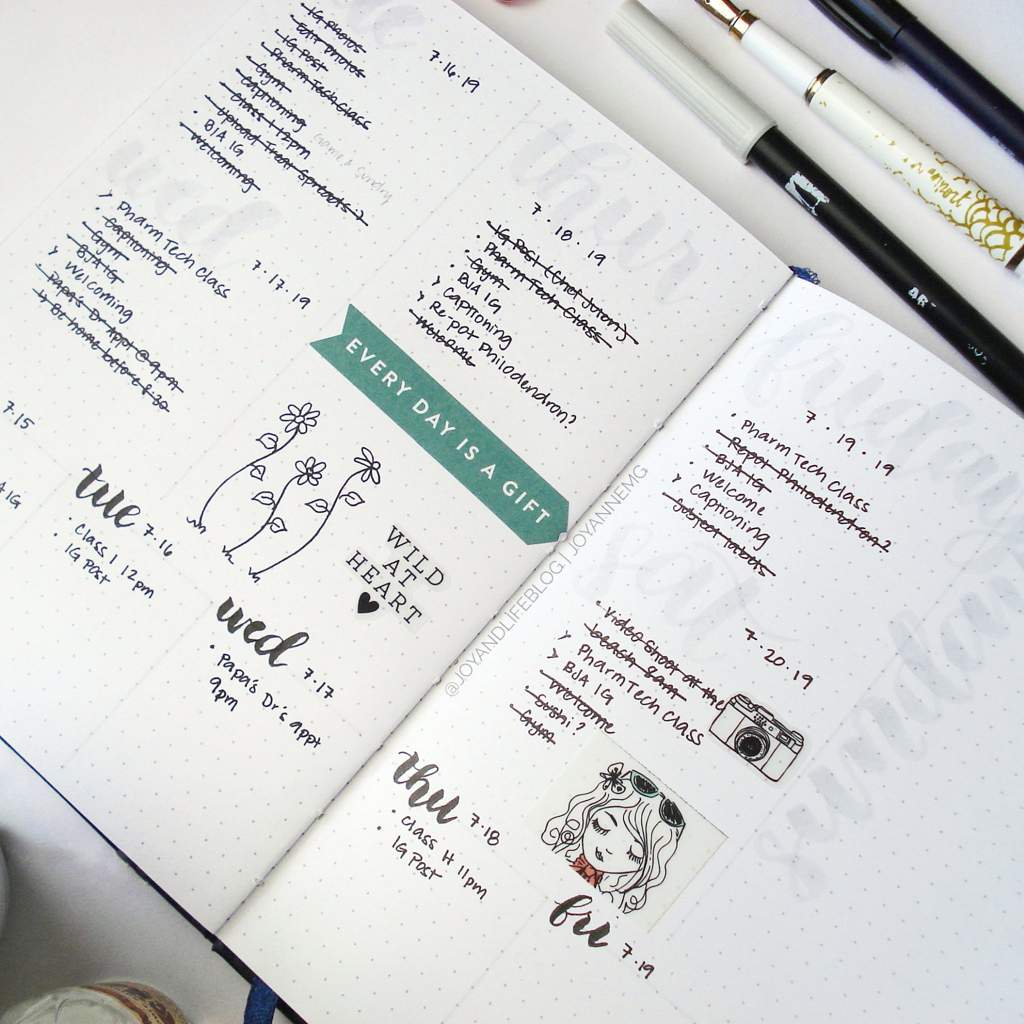 7.16.19
IG PHOTOS
EDIT PHOTOS
IG POST
Pharm Tech Class
Gym
Captioning
Class 1 12pm
Upload Treat Spreads?
• BJA IG
Welcoming
wed
7.17.19
> Pharm Tech Class
Captioning
Gym
BJA IG
> Welcoming
PAPA'S Dr Appt @ 9pm
thur
7.18.19
• IG Post (Chef Joton)
• Pharm Tech Class
Gym
> BJA IG
> Captioning
> Re-pot Philodendron?
Welcome
EVERY DAY IS A GIFT
WILD
AT
HEART
7.15
tue 7.16
• Class 1 12pm
• IG Post
wed 7.17
• Papa's Dr's appt
9pm
@JOYANDLIFEBLOG | JOYANNEMG
friday
7.19.19
• Pharm Tech Class
• Repot Philodendron?
BJA IG
• Welcome
> Captioning
sat
7.20.19
• Video shoot at the
beach 8am
> Pharm Tech Class
> BJA IG
Welcome
• Sushi?
Gym
sunday
thu 7.18
• Class H 11pm
• IG Post
fri 7.19